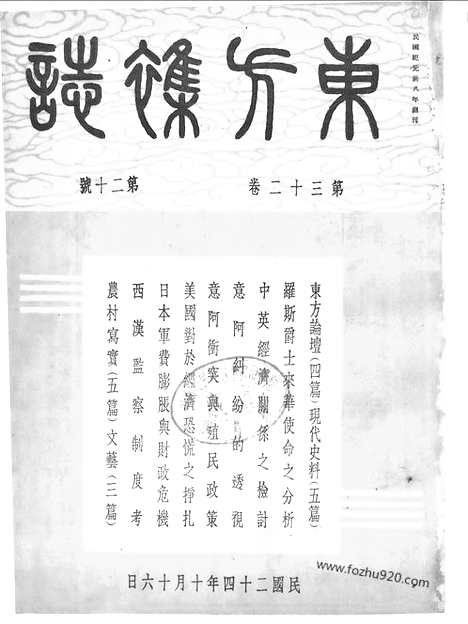 民國紀元前八年創刊
東方雜誌
第三十二卷 第二十號
東方論壇(四篇)現代史料(五篇)
羅斯爵士來華使命之分析
中英經濟關係之檢討
意阿糾紛的透視
意阿衝突與殖民政策
美國對於經濟恐慌之掙扎
日本軍費膨脹與財政危機
西漢監察制度考
農村寫實(五篇)文藝(三篇)
民國二十四年十月十六日
www.fozhu920.com